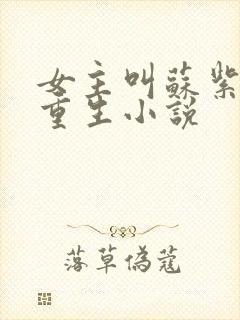 女主叫蘇紫
重生小說
落草偽蔻